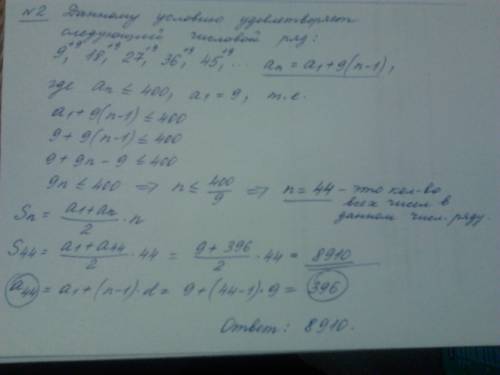 №2 Данному условию удовлетворяет
следующий числовой ряд:
+9 +9 +9 +9 +9
9, 18, 27, 36, 45, ... aₙ = a₁ + 9(n-1),
где aₙ ≤ 400, a₁ = 9, т.е.
a₁ + 9(n-1) ≤ 400
9 + 9(n-1) ≤ 400
9 + 9n - 9 ≤ 400
9n ≤ 400 => n ≤ 400/9 => n = 44 - это кол-во
всех чисел в
данном числ. ряду.
Sₙ = (a₁ + aₙ)/2 · n
S₄₄ = (a₁ + a₄₄)/2 · 44 = (9 + 396)/2 · 44 = 8910
a₄₄ = a₁ + (n-1)·d = 9 + (44-1)·9 = 396
Ответ: 8910.